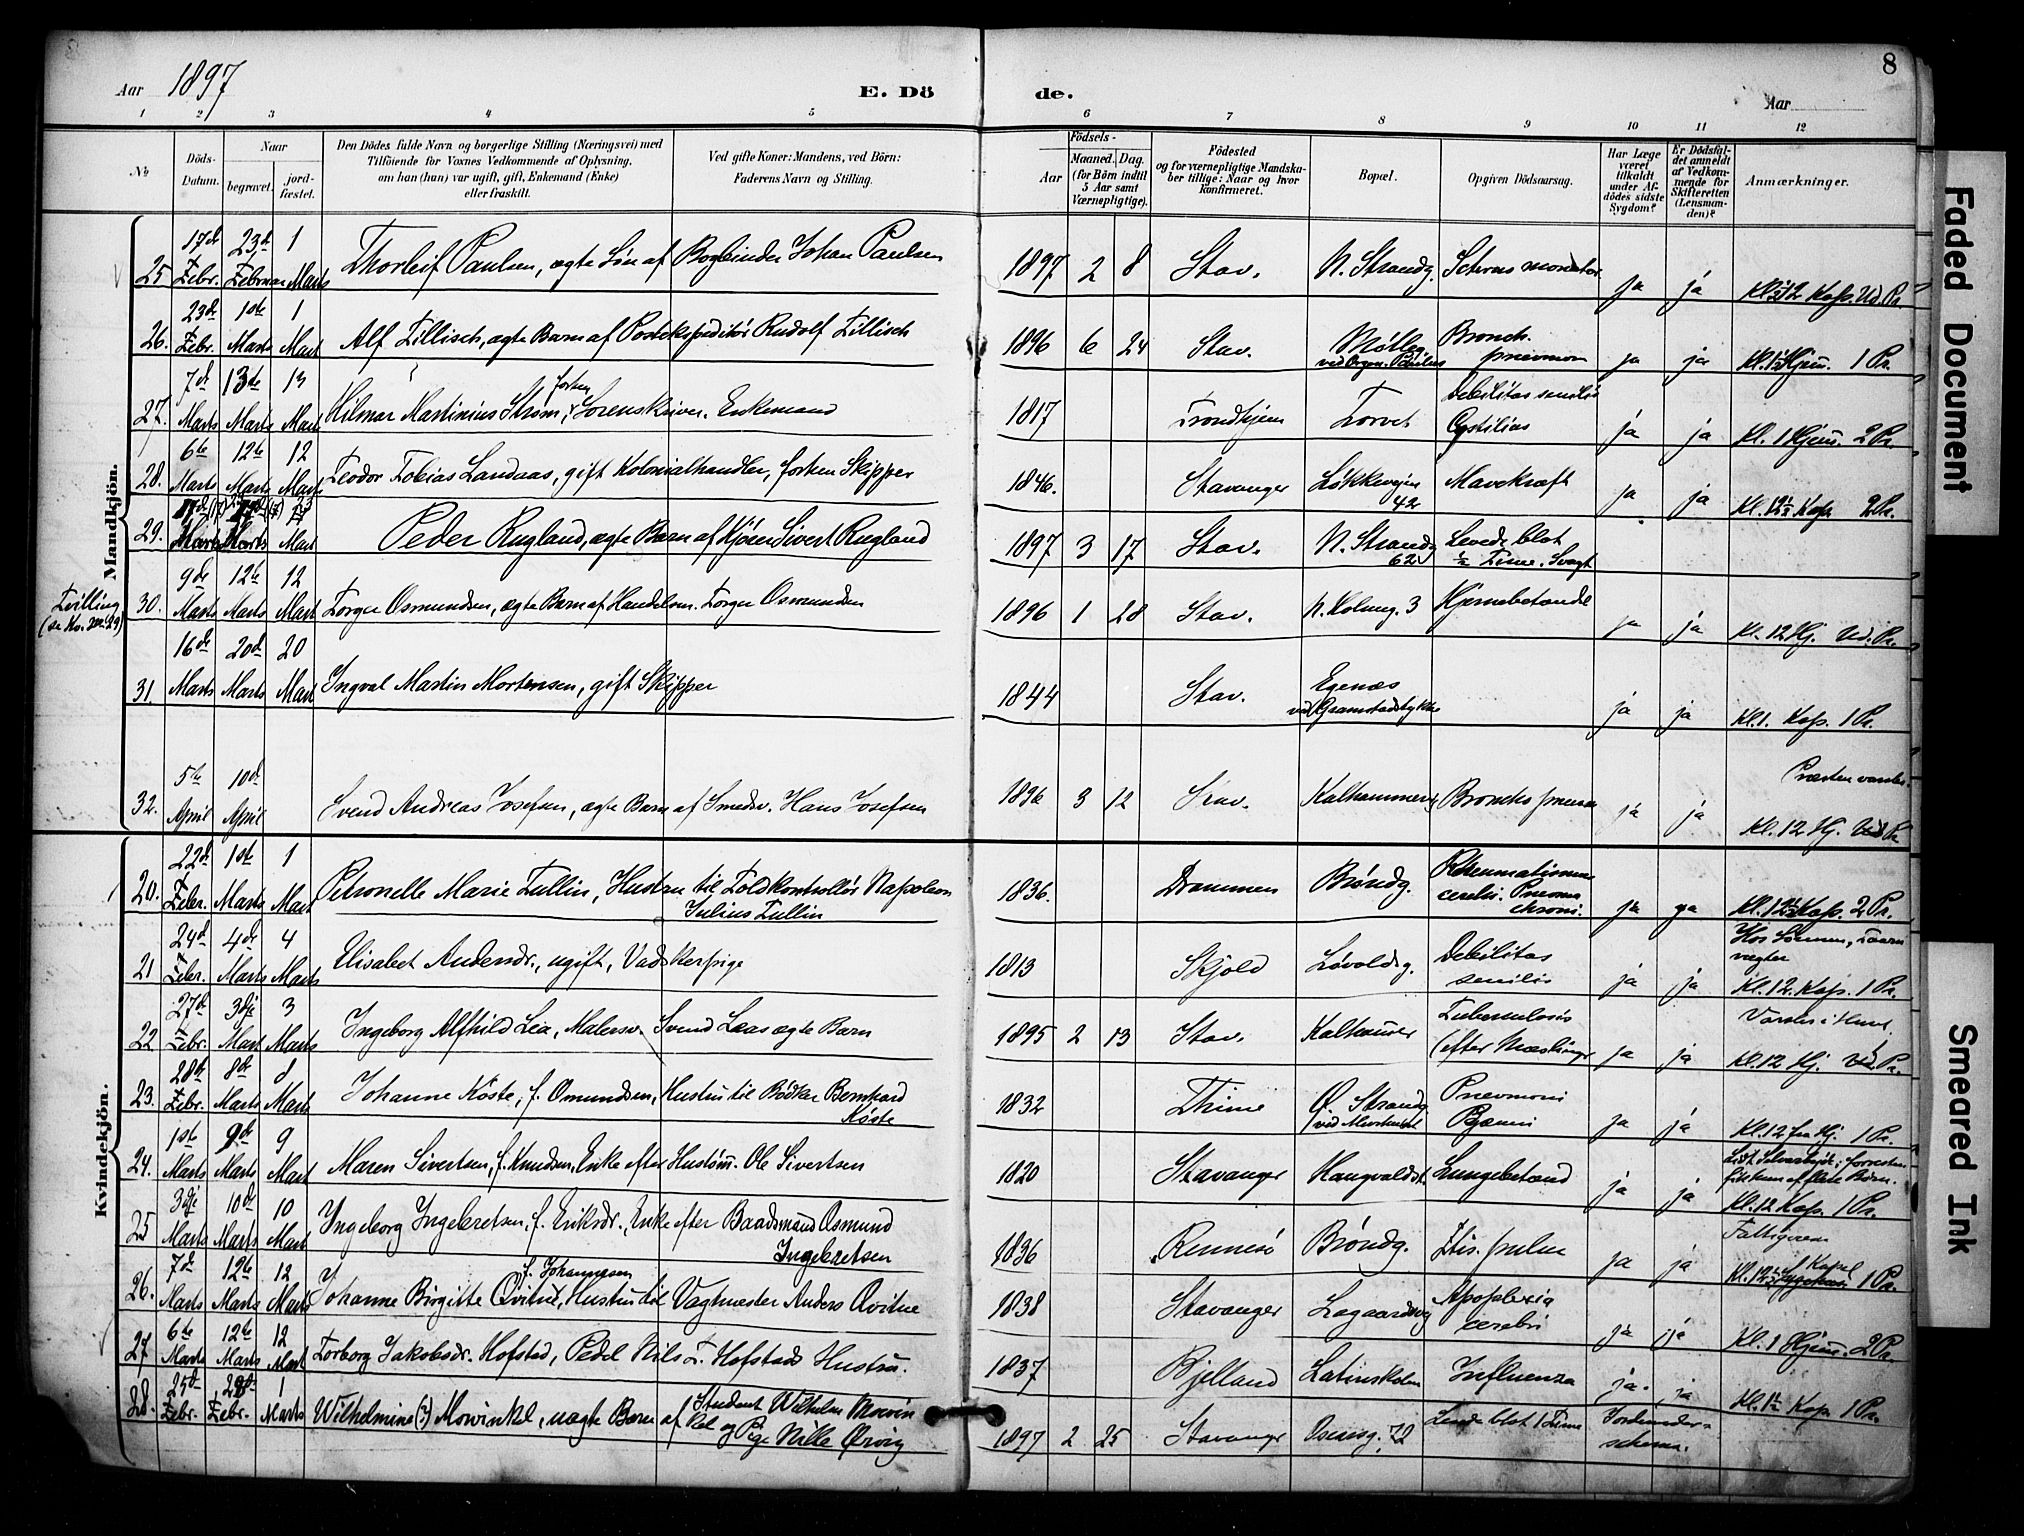 Aar 1897
E. Dö
de.
8
Aar
1 2 3 4 5 6 7 8 9 10 11 12
No
Döds-
Datum.
Naar
begravet.
jord-
fæstet.
Den Dödes fulde Navn og borgerlige Stilling (Næringsvei) med
Tilföiende for Voxnes Vedkommende af Oplysning,
om han (hun) var ugift, gift, Enkemand (Enke)
eller fraskilt.
Ved gifte Koner: Mandens, ved Börn:
Faderens Navn og Stilling.
Födsels-
Aar
Maaned. Dag.
(for Börn indtil
5 Aar samt
Værnepligtige).
Födested
og for værnepligtige Mandska-
ber tillige: Naar og hvor
konfirmeret.
Bopæl.
Opgiven Dödsaarsag.
Har Læge
været
tilkaldt
under Af-
dödes sidste
Sygdom?
Er Dödsfal-
det anmeldt
af Vedkom-
mende for
Skifteretten
(Lensman-
den)?
Anmærkninger.
Mandkjön.
25. 17de Febr. 23de Februar 1 Marts Thorleif Paulsen, ægte Søn af Bogbinder Johan Paulsen 1897 2 8 Stav. N. Strandg. ja ja
26. 23de Febr. 1ste Marts 1 Mart Alf Tillisch, ægte Barn af Postekspeditør Rudolf Tillisch 1896 6 24 Stav. Bronch. pnevmon ja ja Kl. 12½ Hjem. 1 Pr.
27. 7de Marts 13te Marts 13 Mart Hilmar Martinius Strøm, forhen Sorenskriver. Enkemand 1817 Trondhjem Torvet Debilitas senilis ja ja Kl. 1 Hjem. 2 Pr.
28. 6te Marts 12te Marts 12 Marts Teodor Tobias Landaas, gift Kolonialhandler, forhen Skipper 1846. Stavanger Løkkeveien 42 Mavekræft ja ja Kl. 12½ Kap. 2 Pr.
29. Marts Marts Mart Peder Rugland, ægte Barn af Kjører Sivert Rugland 1897 3 17 Stav. N. Strandg 62 Levede blot ½ Time. Svagt
Tvilling
30. 9de Marts 12te Marts 12 Mart Torger Osmundsen, ægte Barn af Handelsm. Torger Osmundsen 1896 1 28 Stav. N. Holmeg. 3 Hjernebetændel ja ja Kl. 12 Hj. Ud. Pr.
31. 16de Marts 20de Marts 20 Mart Ingval Martin Mortensen, gift Skipper 1844 Stav. Egenæs ja ja Kl. 1. Kap. 1 Pr.
32. 5te April 10de April Svend Andreas Josefsen, ægte Barn af Smedsv. Hans Josefsen 1896 3 12 Stav. Kalhammerv. ja ja Kl. 12 Hj. Ud Pr
Kvindekjön.
20. 22de Febr. 1ste Marts 1 Mart Petronelle Marie Tullin, Hustru til Toldkontrollør Napoleon
Julius Tullin 1836. Drammen Brøndg. ja ja Kl. 12½ Kap. 2 Pr.
21 24de Febr. 4de Marts 4 Marts Elisabet Andersdr., ugift, Vadskerpige 1813 Skjold Løvoldsg. Debilitas senilis ja ja Kl. 12. Kap. 1 Pr.
22 27de Febr. 3dje Mart 3 Marts Ingeborg Alfhild Lea, Malersv. Svend Leas ægte Barn 1895 2 13 Stav. Kalhamer Tuberkulosis (efter Mæslinger ja ja Kl. 12 Hj. Ud. Pr.
23. 28de Febr. 8de Marts 8 Marts Johanne Køste, f. Omundsen, Hustru til Bødker Bernhard
Køste 1832 Thime Ø. Strandg Pnevmoni Pyæmi ja ja Kl. 12 fra Hj. 1 Pr.
24. 1ste Marts 9de Marts 9 Mart Maren Sivertsen, f. Knudsen, Enke efter Hustøm. Ole Sivertsen 1820 Stavanger Haugvaldst. Lungebetænd ja ja Kl. 12 Kap. 1 Pr.
25 3dje Marts 10de Marts 10 Mart Ingeborg Ingebretsen, f. Eriksdr., Enke efter Baadsmand Osmund
Ingebretsen 1836 Rennesø Brøndg. Ftis. pulm ja ja Fattigvæs
26. 7de Marts 12te Marts 12 Marts Johanne Birgitte Qvitne, f. Johannesen Hustru til Vagtmester Anders Qvitne 1838 Stavanger Lagaardsvg Apoplexia cerebri ja ja Kl. 1 Hjem. 2 Pr.
27 6te Marts 12te Marts 12 Mart Torborg Jakobsdr. Hofstad, Pedel Nils T. Hofstads Hustru. 1837 Bjelland Latinskolen Influenza ja. ja Kl. 1½ Kap 1 Pr.
28. 25de Febr. Febr. 1 Marts Wilhelmine (?) Mowinkel, uægte Barn af Student Wilhelm Mowin
kel og Pige Nille Ørvig 1897 2 25 Stavanger 72 Levede blot 1 Time Jordmoder-
schema.
Faded Document
Smeared Ink